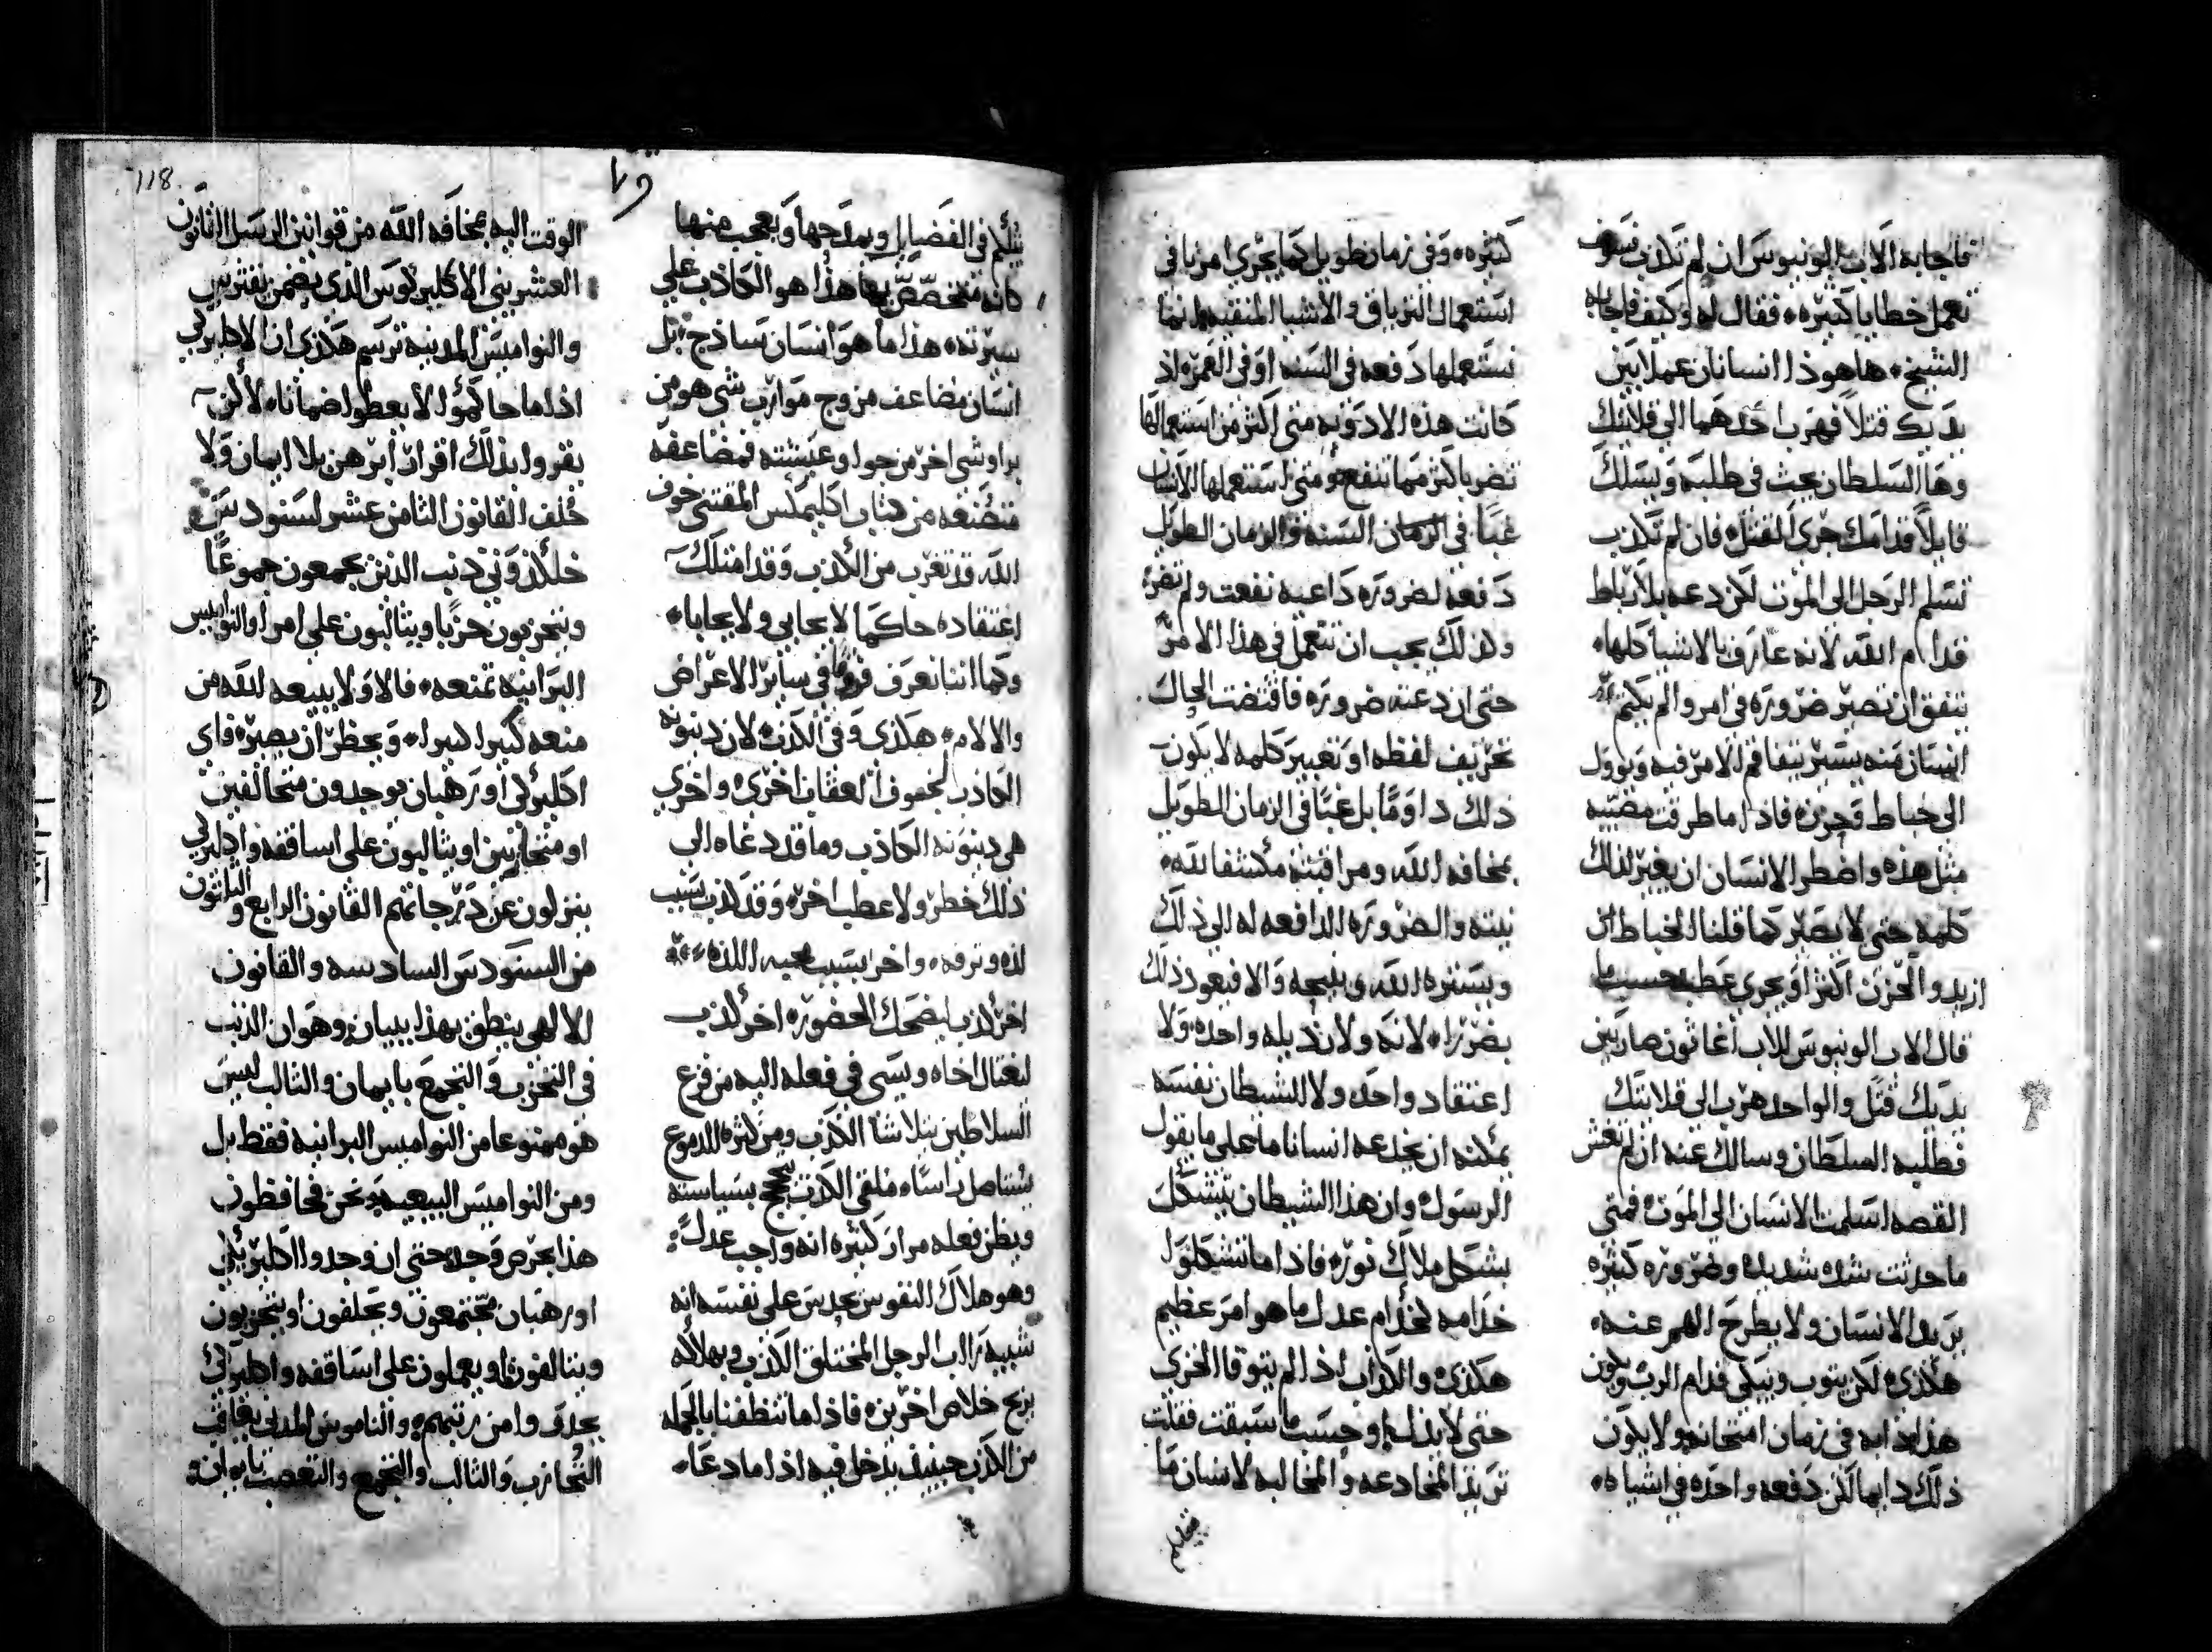 فاجابه الاب الونيوس ان لم تكذب سوف
تعمل خطايا كثيره، فقال له وكيف فاجابه
الشيخ، ها هوذا انسانان عملا بين
يديك قتلاً فهرب احدهما الى قلايتك
وها السلطان يبحث في طلبه ويسلك
قايلاً قدامك جرى القتل، فان لم تكذب
تسلم الرجل الى الموت لكن دعه بلا رباط
قدام الله لانه عارف بالاشيا كلها،
يتفق ان تصير ضروره في امر والم يكتم
انسان منه يسير يتفاقم الامر فيه ويوول
الى خباط وحزن، فاذا ما طرقت مصيبه
مثل هذه واضطر الانسان ان يغير لذلك
كلمه حتى لا يصير كما قلنا الخباط
ازيد والحزن اكثر او يجري عطب حسب ما
قال الاب الونيوس للاب اغاثون صار بين
يديك قتل والواحد هرب الى قلايتك
فطلبه السلطان وسالك عنه ان لم تغش
القصه اسلمت الانسان الى الموت، فمتى
ما حدثت شده شديده وضروره كثيره
يريد الانسان ولا يطرح الهم عنه،
هكذى، لكن يتوب ويبكي قدام الرب ويكون
هذا دابه في زمان امتحانه ولا يكون
ذلك دايما لكن دفعه واحده في اشيا
كثيره، وفي زمان طويل كما يجري امرنا في
استعمال الترياق والاشيا المنقيه انما
نستعملها دفعه في السنه او في العمر، اذ
كانت هذه الادويه متى اكثر من استعمالها
تضر باكثر مما تنفع، ومتى استعملها الانسان
غبًا في الزمان السنه والزمان الطويل
دفعه لضروره داعيه نفعت ولم تضر
ولذلك يجب ان نتعمل في هذا الامر
حتى ان دعته ضروره فاقتضت الحال
تحريف لفظه او تغيير كلمه لا يكون
ذلك داومًا بل غبًا في الزمان الطويل
بمخافة الله ومراقبته مكشفا لله،
نيته والضروره الدافعه له الى ذلك
ويستره الله والا فيعود ذلك
بضررا، لانه ولا رذيله واحده ولا
اعتقاد واحد ولا الشيطان نفسه
يمكنه ان يخدعه انسانا ما على ما يقول
الرسول، وان هذا الشيطان يتشكل
بشكل ملاك نور، فاذا ما تشكلوا
خدامه كخدام عدل ما هو امر عظيم
هكذى، والكذاب اذا لم يتوقا الخزي
حتى لا يذل، وحسب ما سبقت فقلت
تريد المخادعه والمخاتله لانسان ما
يتكلم
يتكلم في الفضايل ويمدحها ويعجب منها
كانه متخصص بها هذا هو الكاذب على
سيرته، هذا ما هو انسان ساذج، بل
انسان مضاعف مزوج موارب شي هو من
برا وشي اخر من جوا وعيشته فمضاعفه
متصنعه من كتاب اكليمكس المقتني خوف
الله قد تغرب من الكذب وقد امتلك
اعتقاده حاكما لا يحابي ولا يحابا،
وكما اننا نعرف فروقًا في ساير الاعراض
والالام، هكذى وفي الكذب، لان دينونة
الكاذب لخوف العقاب اخرى، واخرى
هي دينونة الكاذب وما قد دعاه الى
ذلك خطر ولا عطب، اخر وقد كذب بسبب
لذه وترفه، واخر بسبب محبه اللذه
اخر كذب ليضحك الحضور، اخر كذب
ليغتال اخاه ويسي في فعله اليه من فزع
السلاطين يتلاشا الكذب، ومن كثرة الدموع
يستاصل راسًا، ملقي الكذب يحتج بسياسته
ويظن فعله مرار كثيره انه واجب عدل،
وهو هلاك النفوس يحدس على نفسه انه
شبيه براب الرجل المختلق الكذب وبهلاكه
يربح خلاص اخرين، فاذا ما تنظفنا بالجمله
من الكذب حينيذ ندخل فيه اذا ما دعا
118
الوقت اليه بمخافة الله من قوانين الرسل القانون
العشرين الاكليريكوس الذي يضمن يفترس
والنواميس المدنيه ترسم هكذى ان الاكليركي
اذا ما حاكمؤا لا يعطوا ضمانا، لا لكن
يقروا بذلك اقرارا برهن بلا ايمان ولا
حلف القانون الثامن عشر لسنودس
خلكذوني ذنب الذين يجمعون جموعًا
ويتحزبون حزبًا ويثالبون على امر او النواميس
البرانيه تمنعه، فالاولا يبيعه الله من
منعه كبيرا كبيرا، ويحظر ان يصير، فاي
اكليركي او رهبان يوجدون متحالفين
او متحازبين او يثالبون على اساقفه واكليركي
ينزلون عن درجاتهم القانون الرابع والثلاثون
من السنودس السادسه والقانون
الالهي ينطق بهذا ببيان، وهو ان الذنب
في التحزب والتجمع بايمان والثالب ليس
هو ممنوعا من النواميس البرانيه فقط بل
ومن النواميس البيعيه ونحن فحافظون
هذا بحرص وجد، حتى ان وجدوا اكليركي
او رهبان مجتمعون ويحلفون او يتحزبون
ويتالفون او يعملون على اساقفه واكليركي
يحدف وامن رتبتهم، والناموس المدني يعاقب
التحازب والثالب والتجمع والتعصب